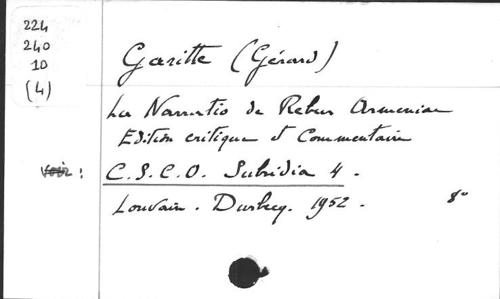 224
240
10
(4)
Garitte (Gérard)
La Narratio de Rebus Armeniae
Edition critique et Commentaire
voir : C.S.C.O. Subsidia 4.
Louvain. Durbecq. 1952. 8°